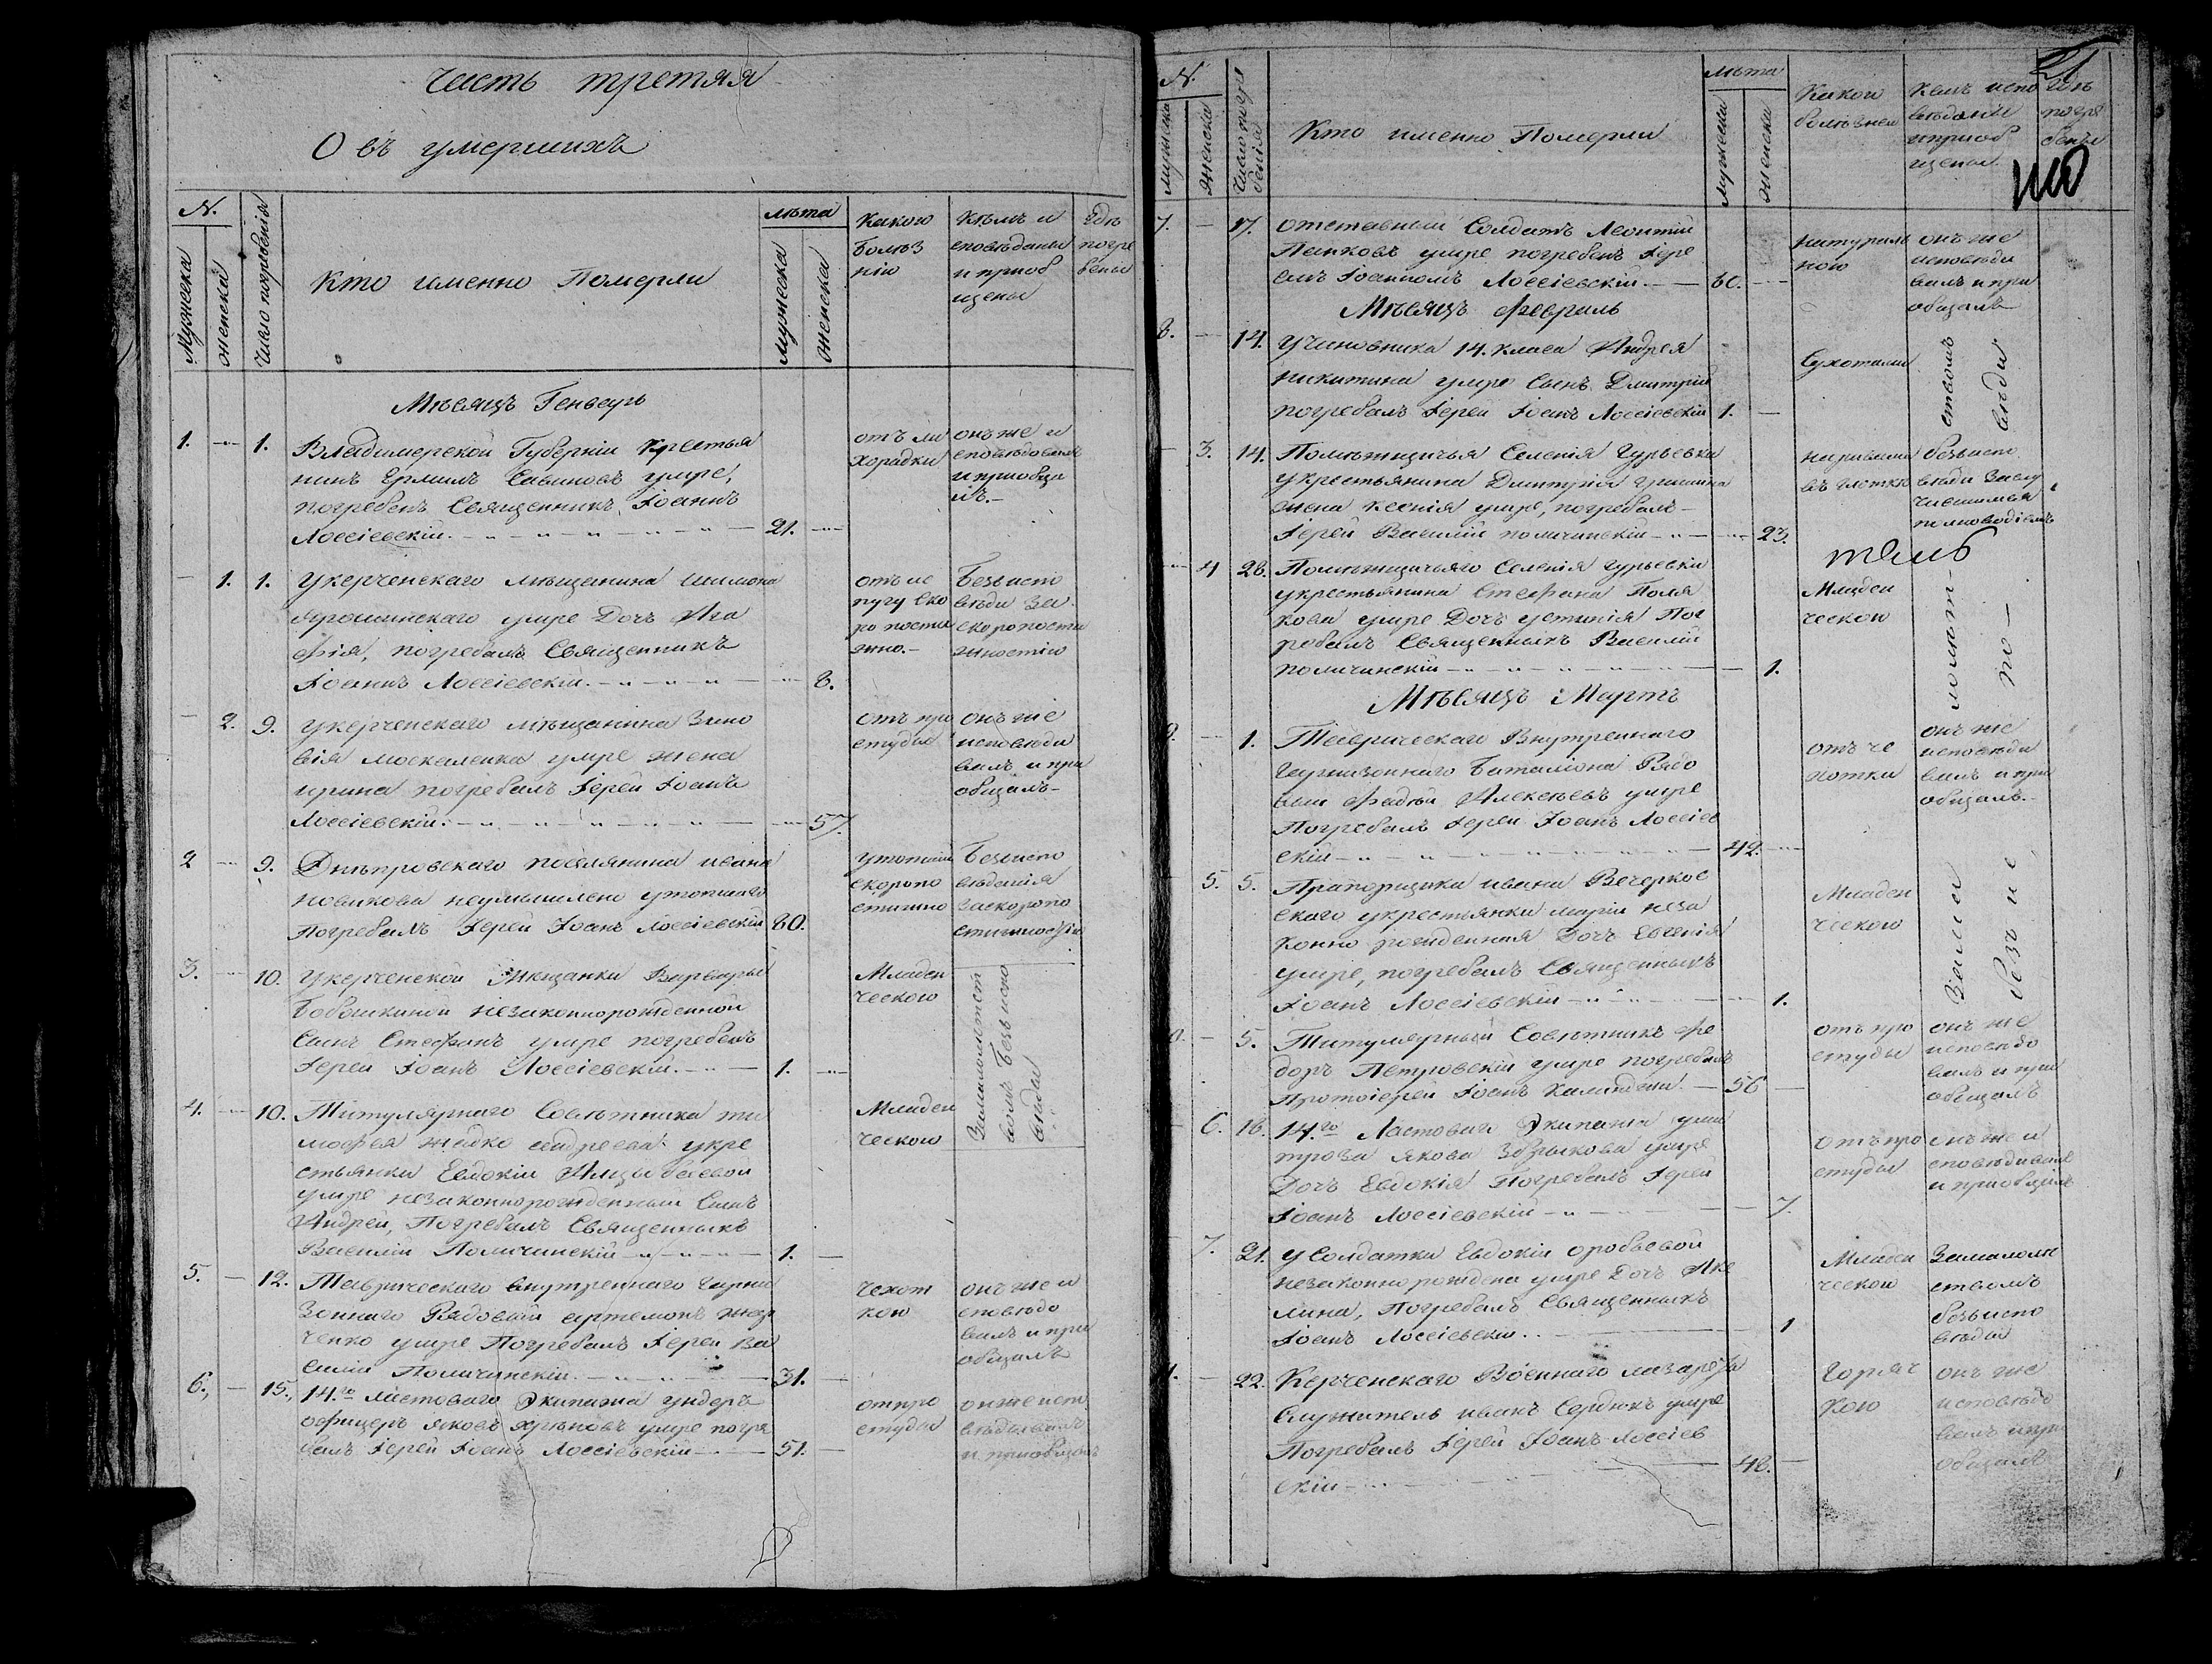 Часть третяя
О въ умершихъ
N.
Мужеска
женска
Число погребенія
Кто именно Померли
лѣта
мужеска
женска
Какою
Болѣз
нію
Кѣмъ и
сповѣданы
и приоб
щены
Гдѣ
погре
бены
Мѣсяцъ Генварь
1. — 1. Владимерской Губерніи Крестья
нинъ Ермилъ Савиновъ умре,
погребенъ Священникъ Іоаннъ
Лоссіевскій. 21. —
отъ ли
хорадки
онъ же и
сповѣдовалъ
и приобща
лъ.—
— 1. 1. Укерченскаго мещанина Шимона
умре Дочь Ага
фія, погребалъ Священникъ
Іоаннъ Лоссіевскій. — 8.
отъ ис
пугу ско
ро пости
жно.—
Безъ испо
вѣди за
скоропости
жностію
— 2. 9. Укерченскаго мѣщанина Зино
вія Москаленка умре жена
ирина погребалъ Іерей Іоанъ
Лоссіевскій. — 57.
отъ про
студы
онъ же
исповѣды
валъ и при
общалъ—
2 — 9. Днѣпровскаго поселянина ивана
новикова неумышлено утопшаго
Погребалъ Іерей Іоанъ Лоссіевскій 80.
утопшій
скоропо
стижно
Безъ испо
вѣданія
заскоропо
стижностію
3. — 10. Укерченской Мѣщанки Варвары
Бобошкиной незаконнорожденной
Сынъ Стефанъ умре погребенъ
Іерей Іоанъ Лоссіевскій. — 1. —
Младен
ческою
Замалолѣтст
вомъ Безъ испо
вѣди
4. — 10. Титулярнаго Совѣтника ти
мофея укре
стьянки Евдокіи
умре незаконнорожденный Сынъ
Андрей, Погребалъ Священникъ
Василій Поличинскій — 1. —
Младен
ческою
5. — 12. Таврическаго внутреннаго Гарни
зоннаго Рядовый артемонъ
ченко умре Погребалъ Іерей Ва
силій Поличинскій. — 31. —
чехот
кою
онъ же и
сповѣдо
валъ и при
общалъ
6. — 15. 14.го ластоваго Экипажа ундеръ
офицеръ яковъ Хрѣновъ умре погре
балъ Іерей Іоанъ Лоссіевскій — 51. —
от про
студы
онже исп
вѣдывалъ
и приобщалъ
21
N.
мужеска
женска
Число погре
бенія
Кто именно Померли
лѣта
мужеска
женска
Какою
болѣзнею
Кемъ испо
вѣданы
и приоб
щены
Гдѣ
погре
бены
7. — 17. отставный Солдатъ Леонтій
Панковъ умре погребенъ Іере
емъ Іоанномъ Лоссіевскій. — 60. —
натураль
ною
онъ же
исповѣды
валъ и при
общалъ
Мѣсяцъ Февраль
8. — 14. Учиновника 14. класа Андрея
никитина умре Сынъ Дмитрій
погребалъ Іерей Іоанъ Лоссіевскій 1. —
Сухотами
ствомъ
вѣди
— 3. 14. Помѣщичья Селенія Гурьевки
укрестьянина Дмитрія Гришина
жена Ксенія умре, погребалъ—
Іерей Василій поличинскій — 23.
нарывами
въ глотке
безъ испо
вѣди Заслу
чившимься
полноводіемъ
— 4 26. Помѣщичьяго Селенія Гурьевки
укрестьянина Стефана Поля
кова умре Дочь устинія Пог
ребалъ Священникъ Василій
поличинскій — 1.
Младен
ческою
молѣт—
по—
Мѣсяцъ Мартъ
9. — 1. Таврическаго Внутреннаго
Гарнизоннаго Баталіона Рядо
вый Фадѣй Алексѣевъ умре
Погребалъ Іерей Іоанъ Лоссіев
скій — 42. —
отъ че
хотки
онъ же
исповѣды
валъ и при
общалъ.—
— 5. 5. Прапорщика ивана Вечеркос
скаго укрестьянки маріи неза
конно рожденная Дочь Евгенія
умре, погребалъ Священникъ
Іоанъ Лоссіевскій — 1.
Младен
ческою
безъ ис
— 5. Титулярный Совѣтникъ Фе
доръ Петровскій умре погребалъ
Протоіерей Іоанъ — 56 —
отъ про
студы
онъ же
исповѣдо
валъ и при
общалъ
— 6. 16. 14.го Ластоваго Экипажа ума
троза якова умре
Дочь Евдокія Погребалъ Іерей
Іоанъ Лоссіевскій — 7.
отъ про
студы
онъ же и
сповѣдывалъ
и приобщалъ
— 7. 21. У Солдатки Евдокіи оробьевой
незаконнорождена умре Дочь Аку
лина, Погребалъ Священникъ
Іоанъ Лоссіевскій. — 1
Младен
ческою
Замалолѣ
ствомъ
безъ испо
вѣди
— 22. Керченскаго Военнаго лазарета
Служитель иванъ Сердюкъ умре
Погребалъ Іерей Іоанъ Лоссіев
скій — 48. —
Горяч
кою
онъ же
исповѣдо
валъ и при
общалъ